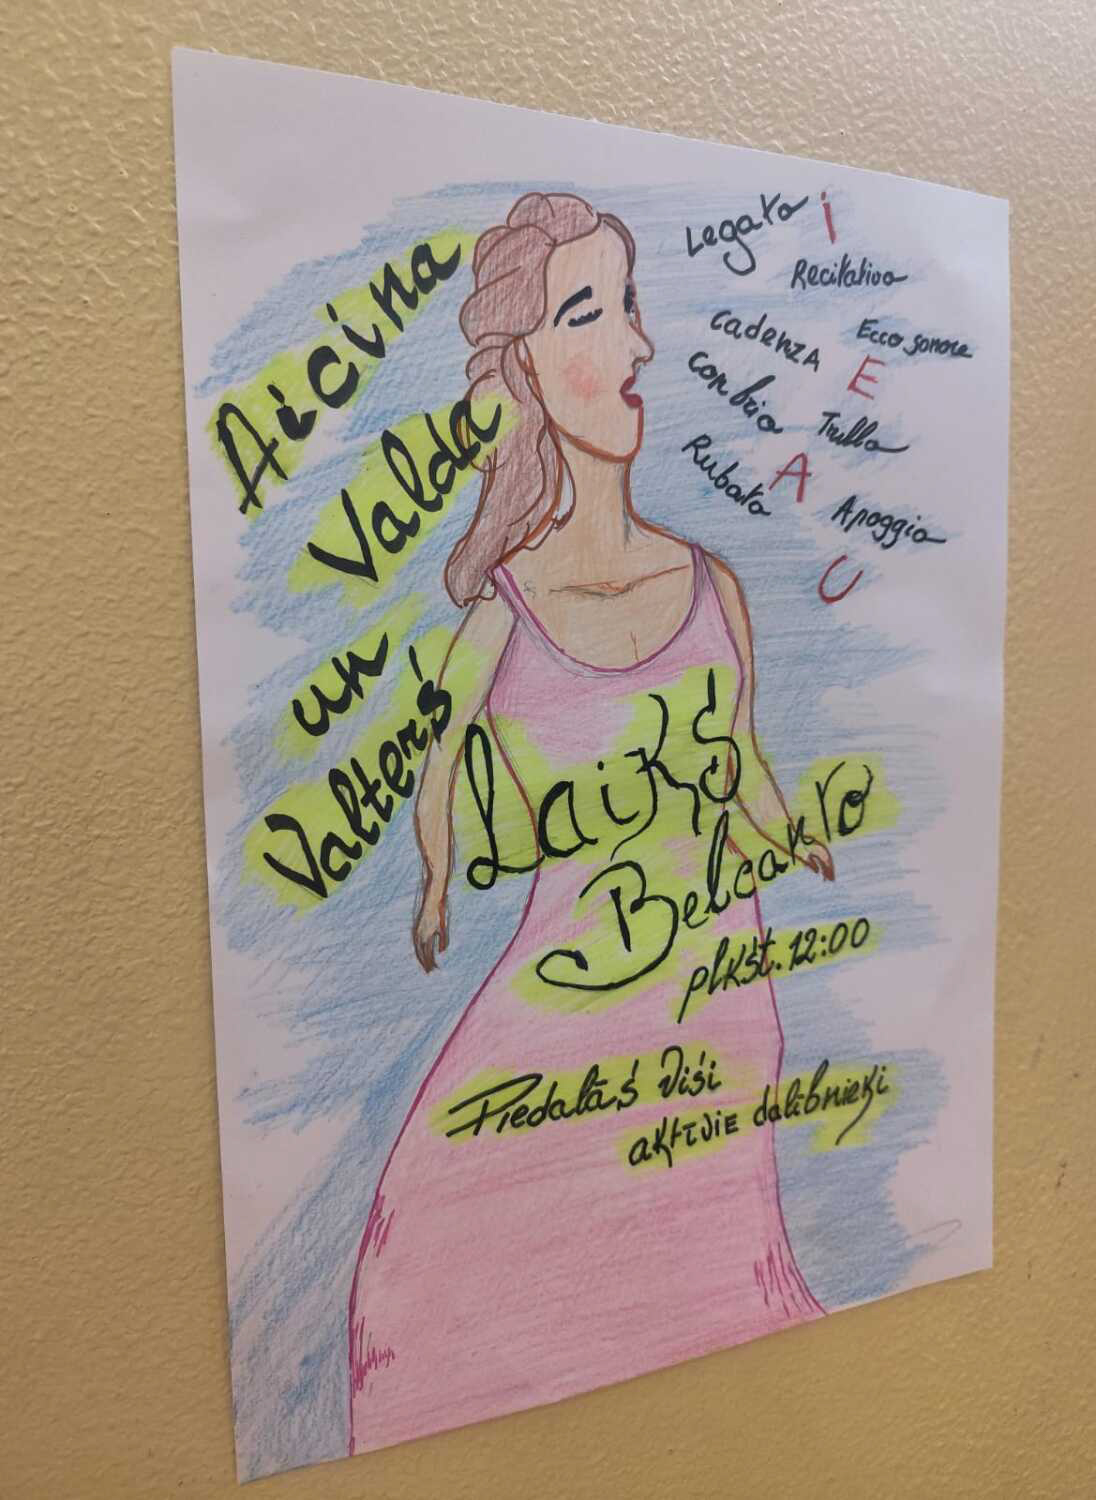 Aicina
Valda
un
Valters
Legato
i
Recitativo
cadenza
Ecco sonore
E
con brio
Trillo
Rubato
A
Apoggio
U
Laiks
Belcanto
plkst. 12:00
Piedalās visi
aktīvie dalībnieki